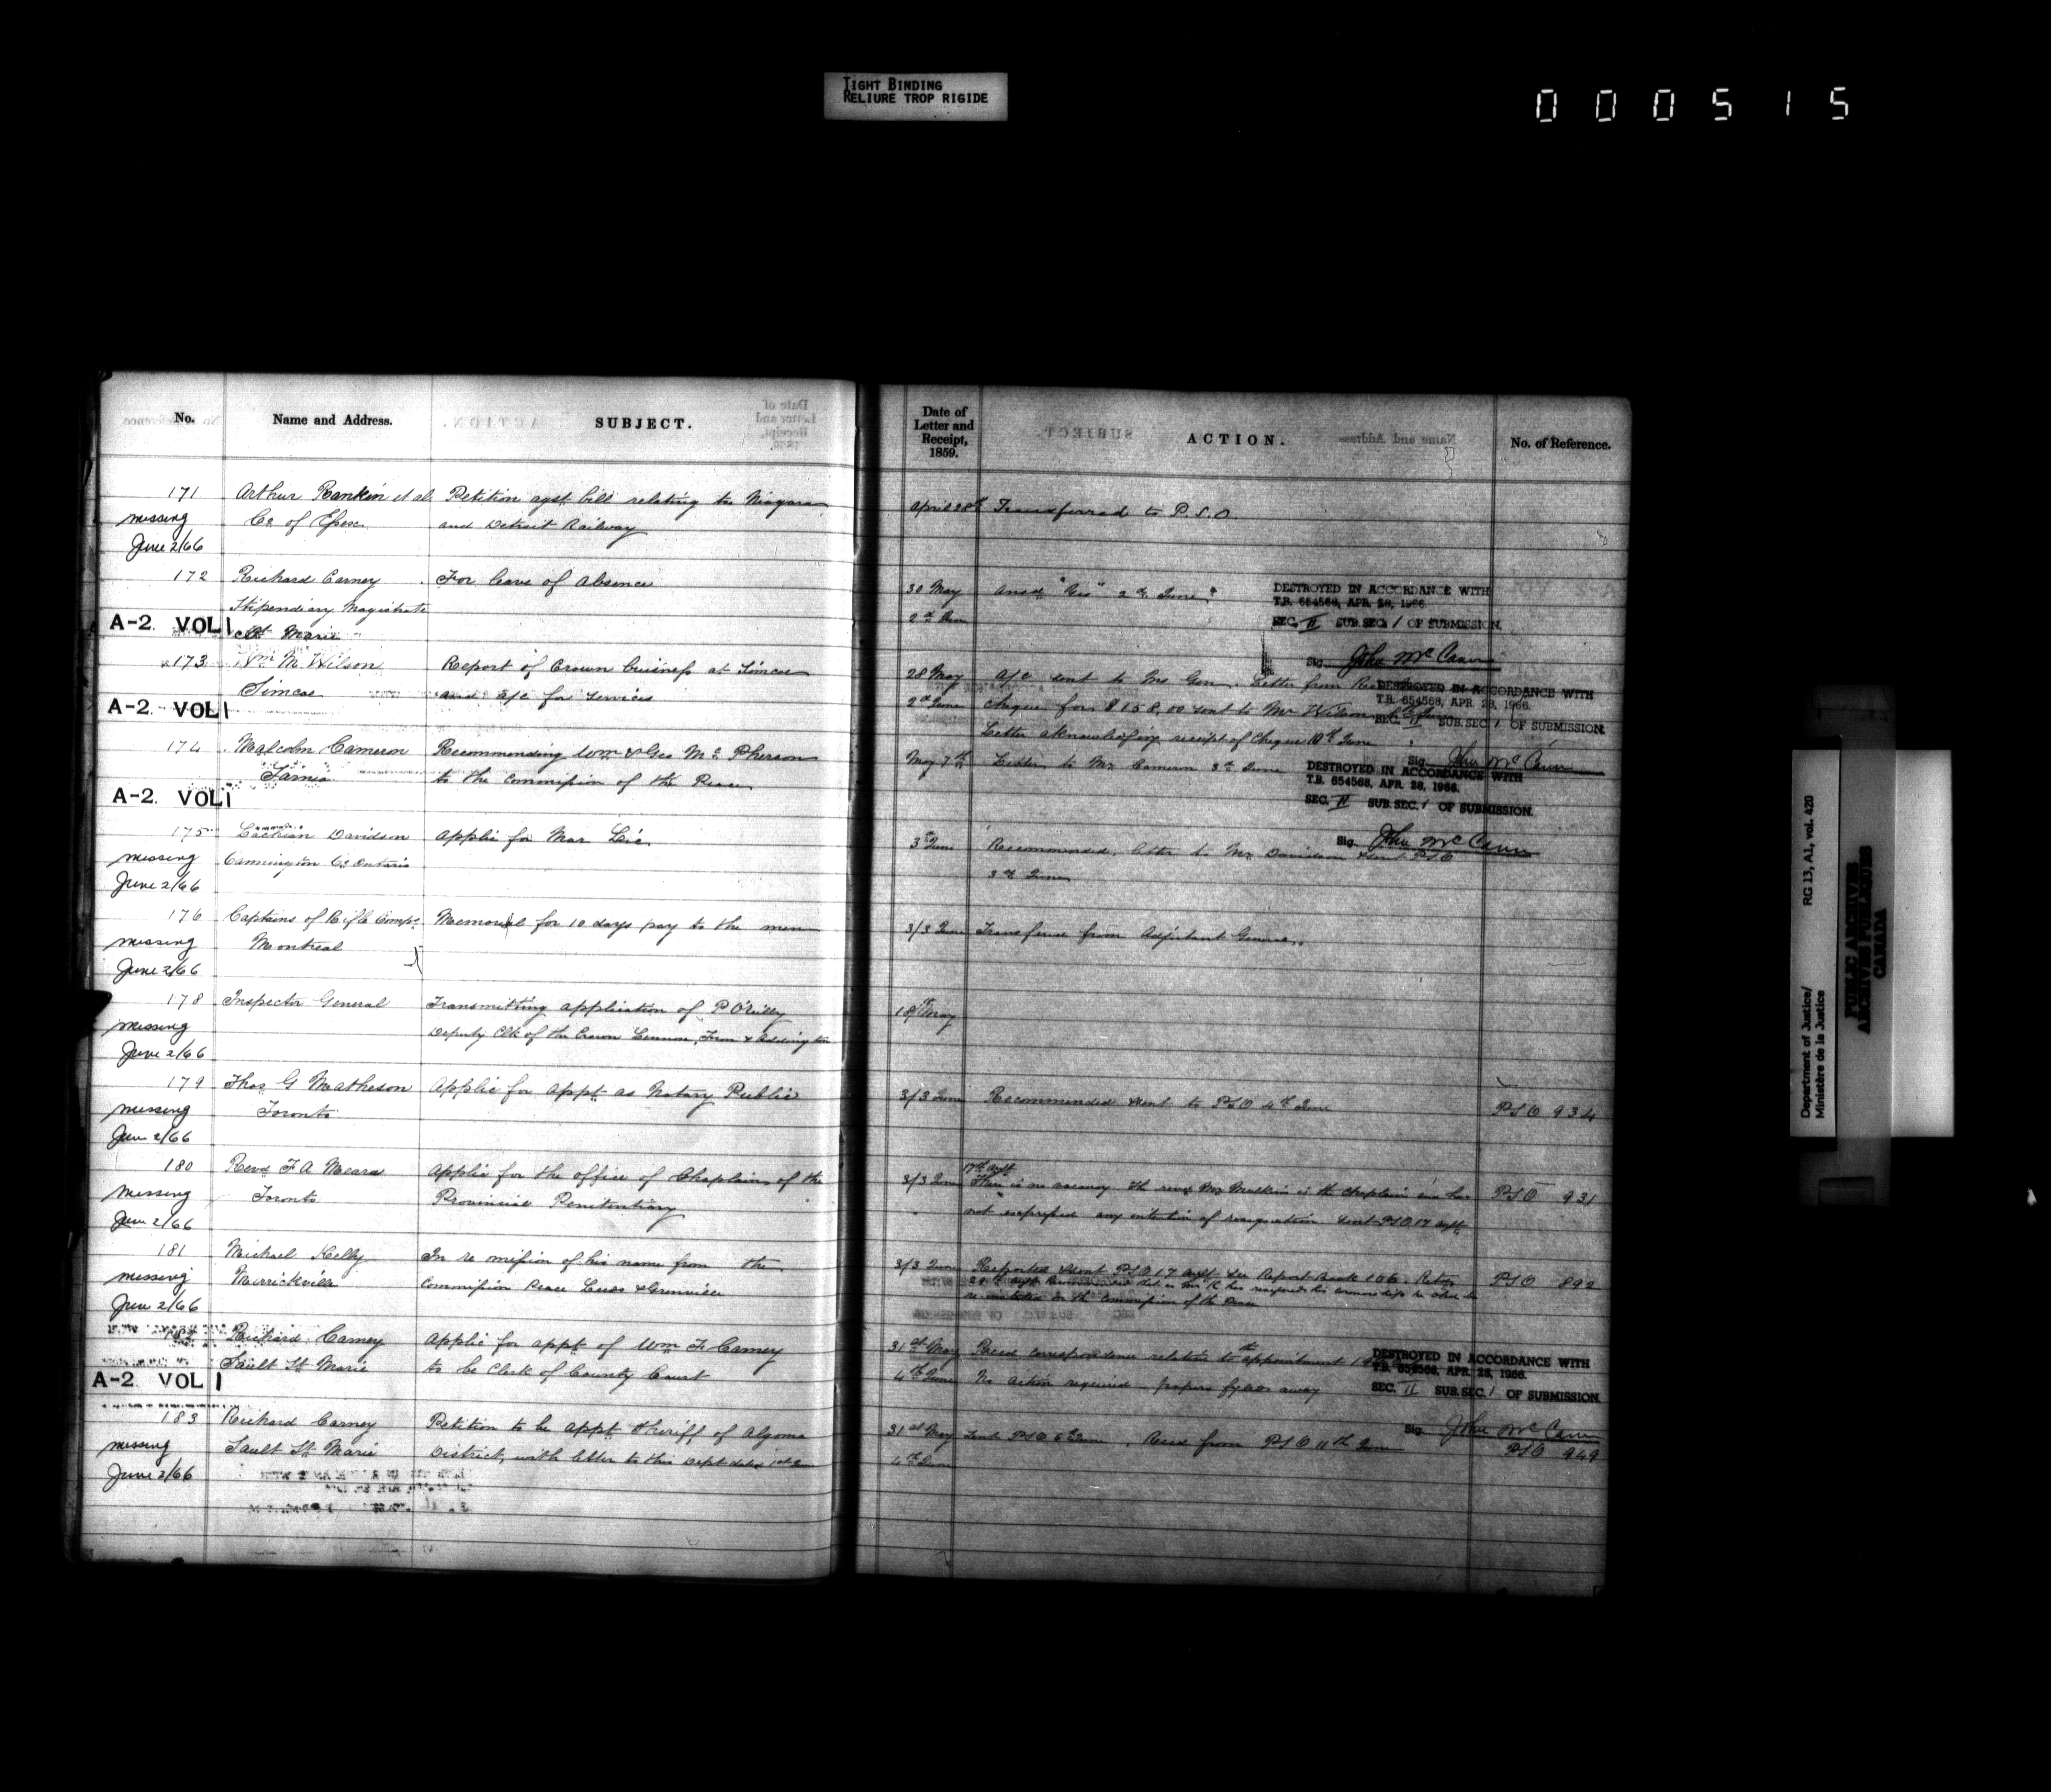 TIGHT BINDING
RELIURE TROP RIGIDE
000515
No.
Name and Address.
SUBJECT.
Date of
Letter and
Receipt,
1859.
ACTION.
No. of Reference.
171
Arthur Rankin et al
Petition agst bill relating to Niagara
April 28th
Transferred to P.S.O.
missing
Co. of Essex
and Detroit Railway
June 2/66
172
Richard Carney
For leave of absence
30 May
Ansd "Yes" 2d June
Stipendiary Magistrate
2d June
A-2 VOL 1
St. Marie
DESTROYED IN ACCORDANCE WITH
T.B. 654568, APR. 28, 1966.
SEC. II SUB.SEC. 1 OF SUBMISSION.
Sig. John McCann
173
Wm M. Wilson
Report of Crown business at Simcoe
28 May
A/c sent to Ins Gen. Letter from
Simcoe
and a/c for services
2d June
cheque for $158.00 sent to Mr Wilson
A-2 VOL 1
Letter acknowledging receipt of Cheque 10th June
DESTROYED IN ACCORDANCE WITH
T.B. 654568, APR. 28, 1966.
SEC. II SUB.SEC. 1 OF SUBMISSION.
Sig. John McCann
174
Malcolm Cameron
Recommending Wm & Geo McPherson
May 7th
Letter to Mr Cameron 3d June
Sarnia
to the Commission of the Peace
A-2 VOL 1
DESTROYED IN ACCORDANCE WITH
T.B. 654568, APR. 28, 1966.
SEC. II SUB.SEC. 1 OF SUBMISSION.
Sig. John McCann
175
Davidson
Applic for Mar Lic.
3d June
Recommended, letter to Mr Davidson sent PSO
missing
Cannington Co. Ontario
3d June
June 2/66
176
Captains of Rifle Comps.
Memorial for 10 days pay to the men
3/3 June
Transferred from Adjutant General
missing
Montreal
June 2/66
178
Inspector General
Transmitting application of P O'Reilly
18th May
missing
Deputy Clk of the Crown Lennox, Fron & Addington
June 2/66
179
Thos G Matheson
Applic for Appt as Notary Public
3/3 June
Recommended sent to PSO 4th June
PSO 934
missing
Toronto
June 2/66
180
Revd F A Meara
Applic for the office of Chaplain of the
3/3 June
17th Augt
There is no vacancy the revd Mr Mulkins is the chaplain and has
PSO 931
missing
Toronto
Provincial Penitentiary
not expressed any intention of resignation. Sent PSO 17 Augt
June 2/66
181
Michael Kelly
In re omission of his name from the
3/3 June
Reported sent PSO 17 Augt see Report Book 106.
PSO 892
missing
Merrickville
Commission Peace Leeds & Grenville
re-instated in the Commission of the Peace
June 2/66
Richard Carney
Applic for appt of Wm F Carney
31st May
Recd correspondence relative to the appointment
Sault St. Marie
to be Clerk of County Court
4th June
No action required papers fyled away
A-2 VOL 1
DESTROYED IN ACCORDANCE WITH
T.B. 654568, APR. 28, 1966.
SEC. II SUB.SEC. 1 OF SUBMISSION.
Sig. John McCann
183
Richard Carney
Petition to be appt Sheriff of Algoma
31st May
Sent PSO 6th June, Recd from PSO 11th June
PSO 949
missing
Sault St. Marie
District, with letter to this Dept dated 1st June
4th June
June 2/66
Department of Justice/
Ministère de la Justice
RG 13, A1, vol. 420
PUBLIC ARCHIVES
ARCHIVES PUBLIQUES
CANADA